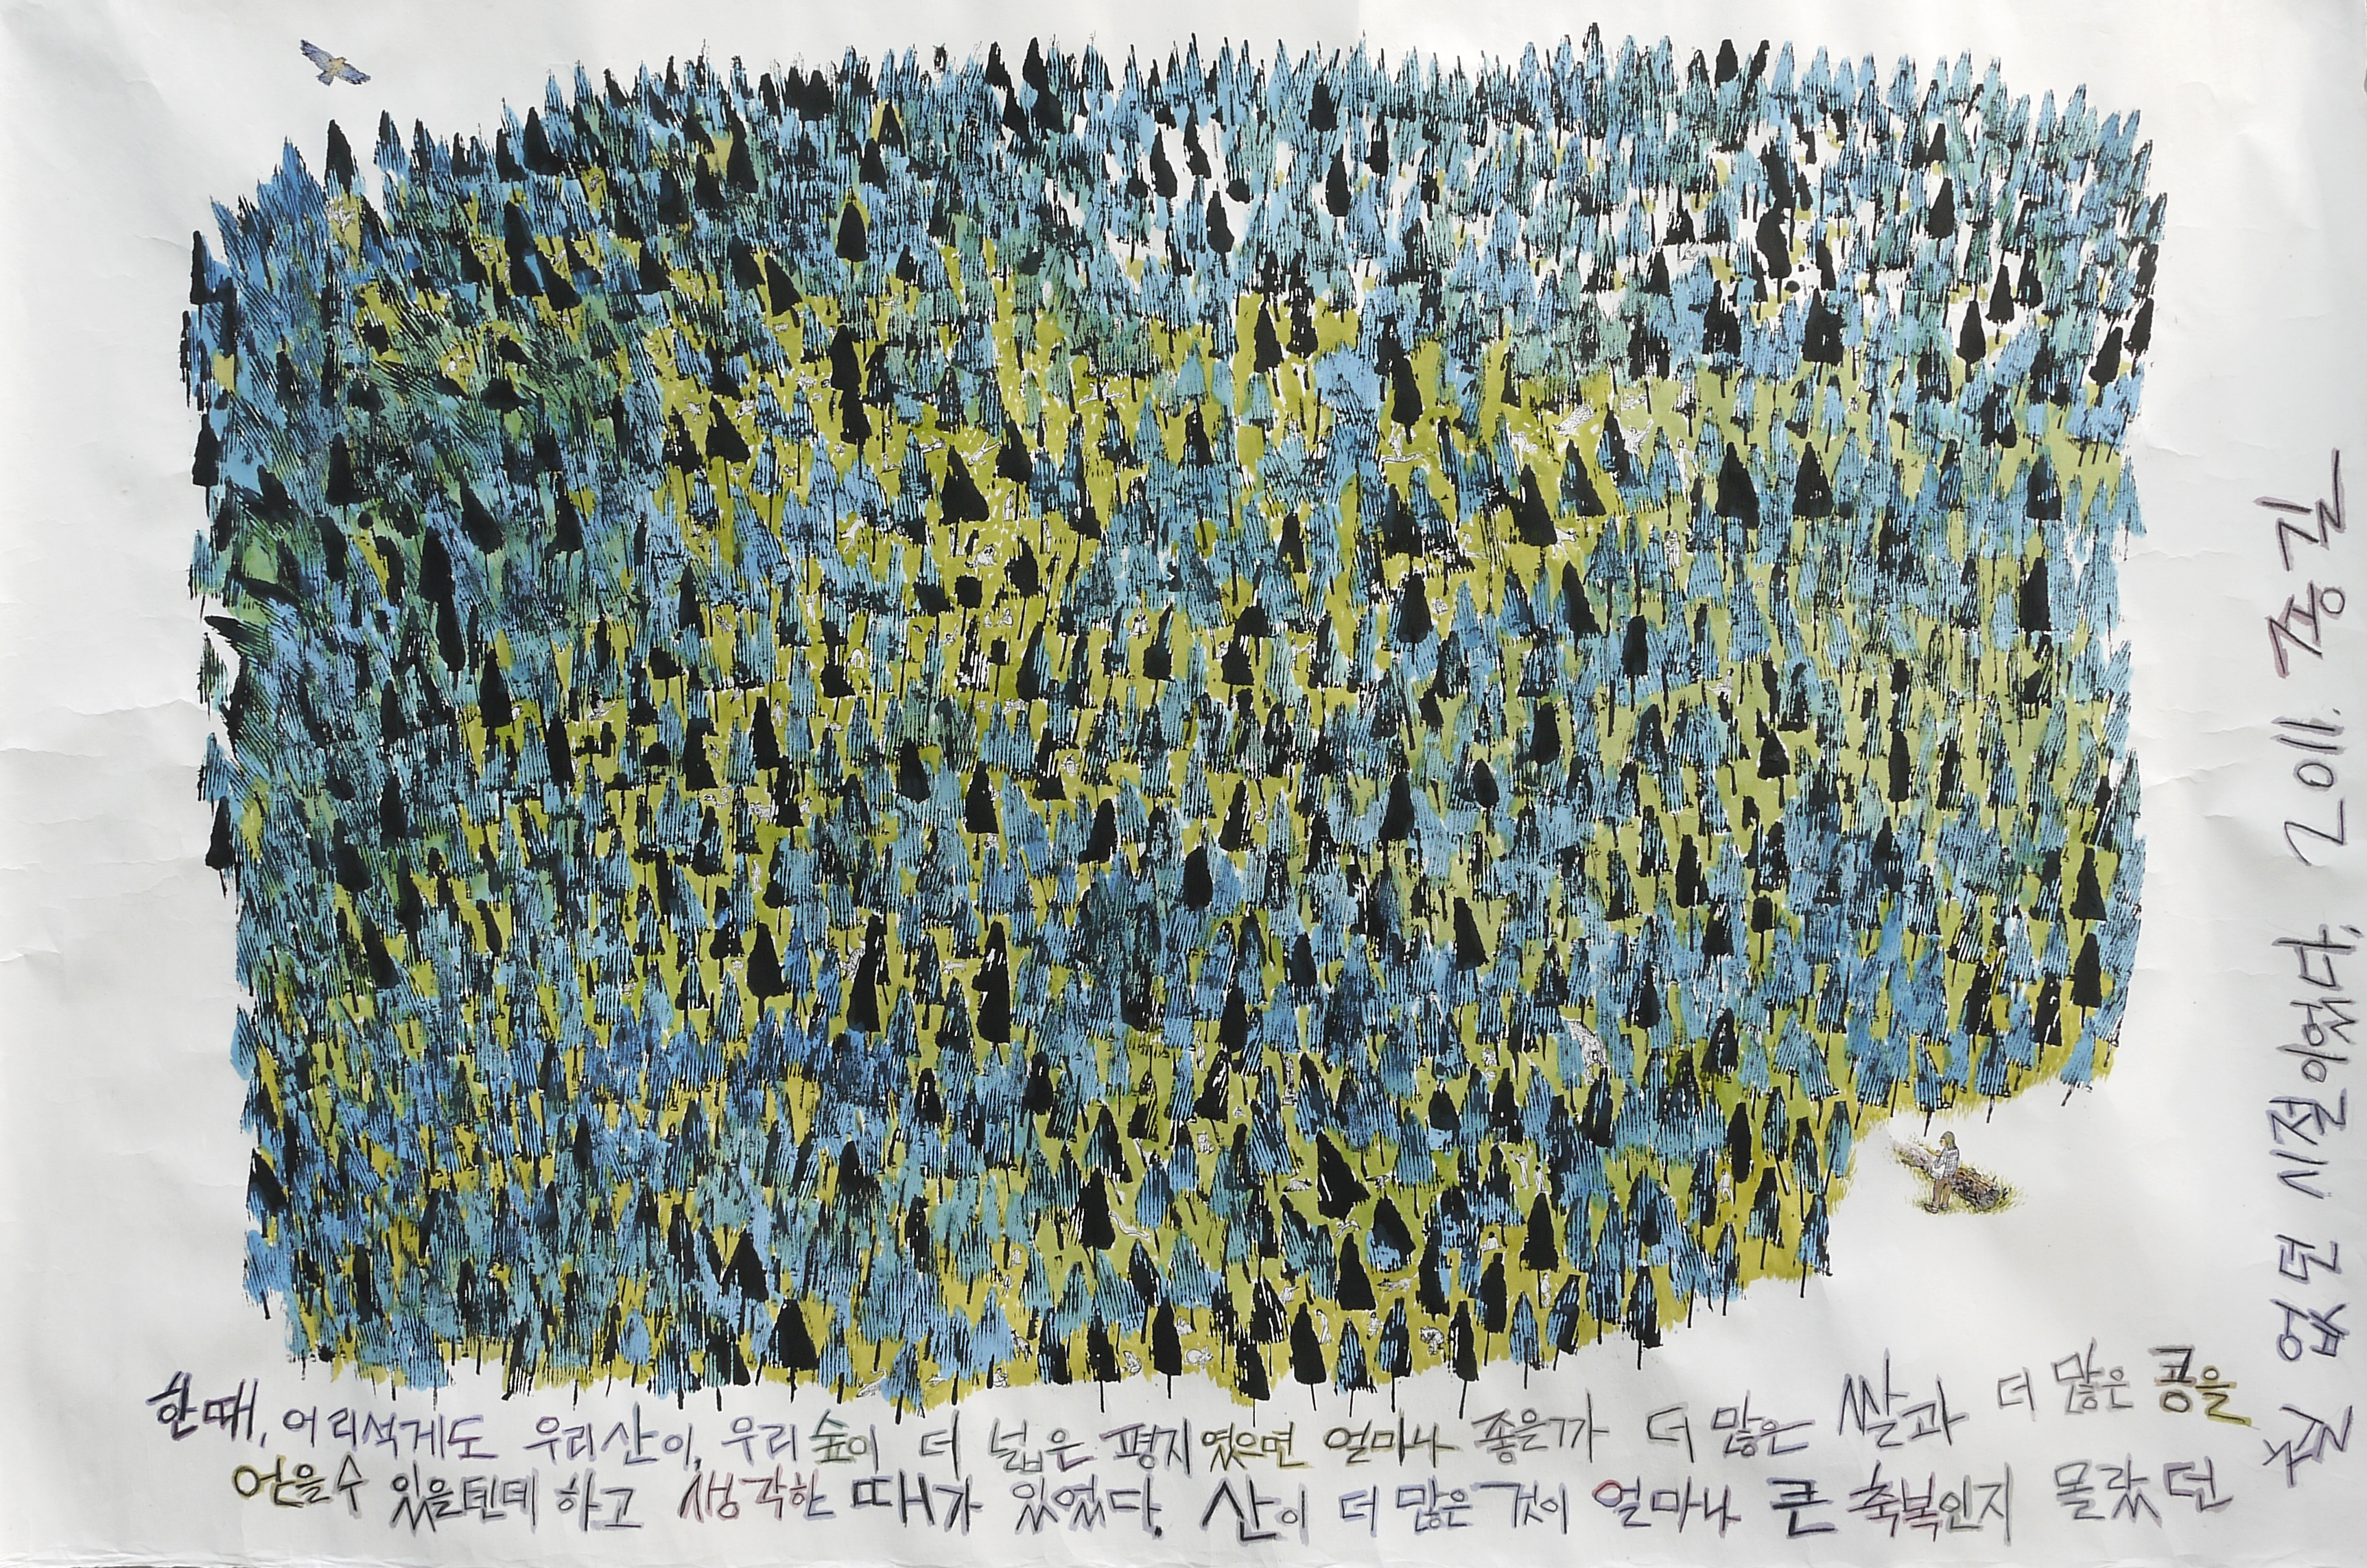 한때, 어리석게도 우리산이, 우리숲이 더 넓은 평지였으면 얼마나 좋을까 더 많은 쌀과 더 많은 콩을
얻을수 있을텐데 하고 생각한 때가 있었다. 산이 더 많은것이 얼마나 큰 축복인지 몰랐던
철 없던 시절이었다. 2011. 종길